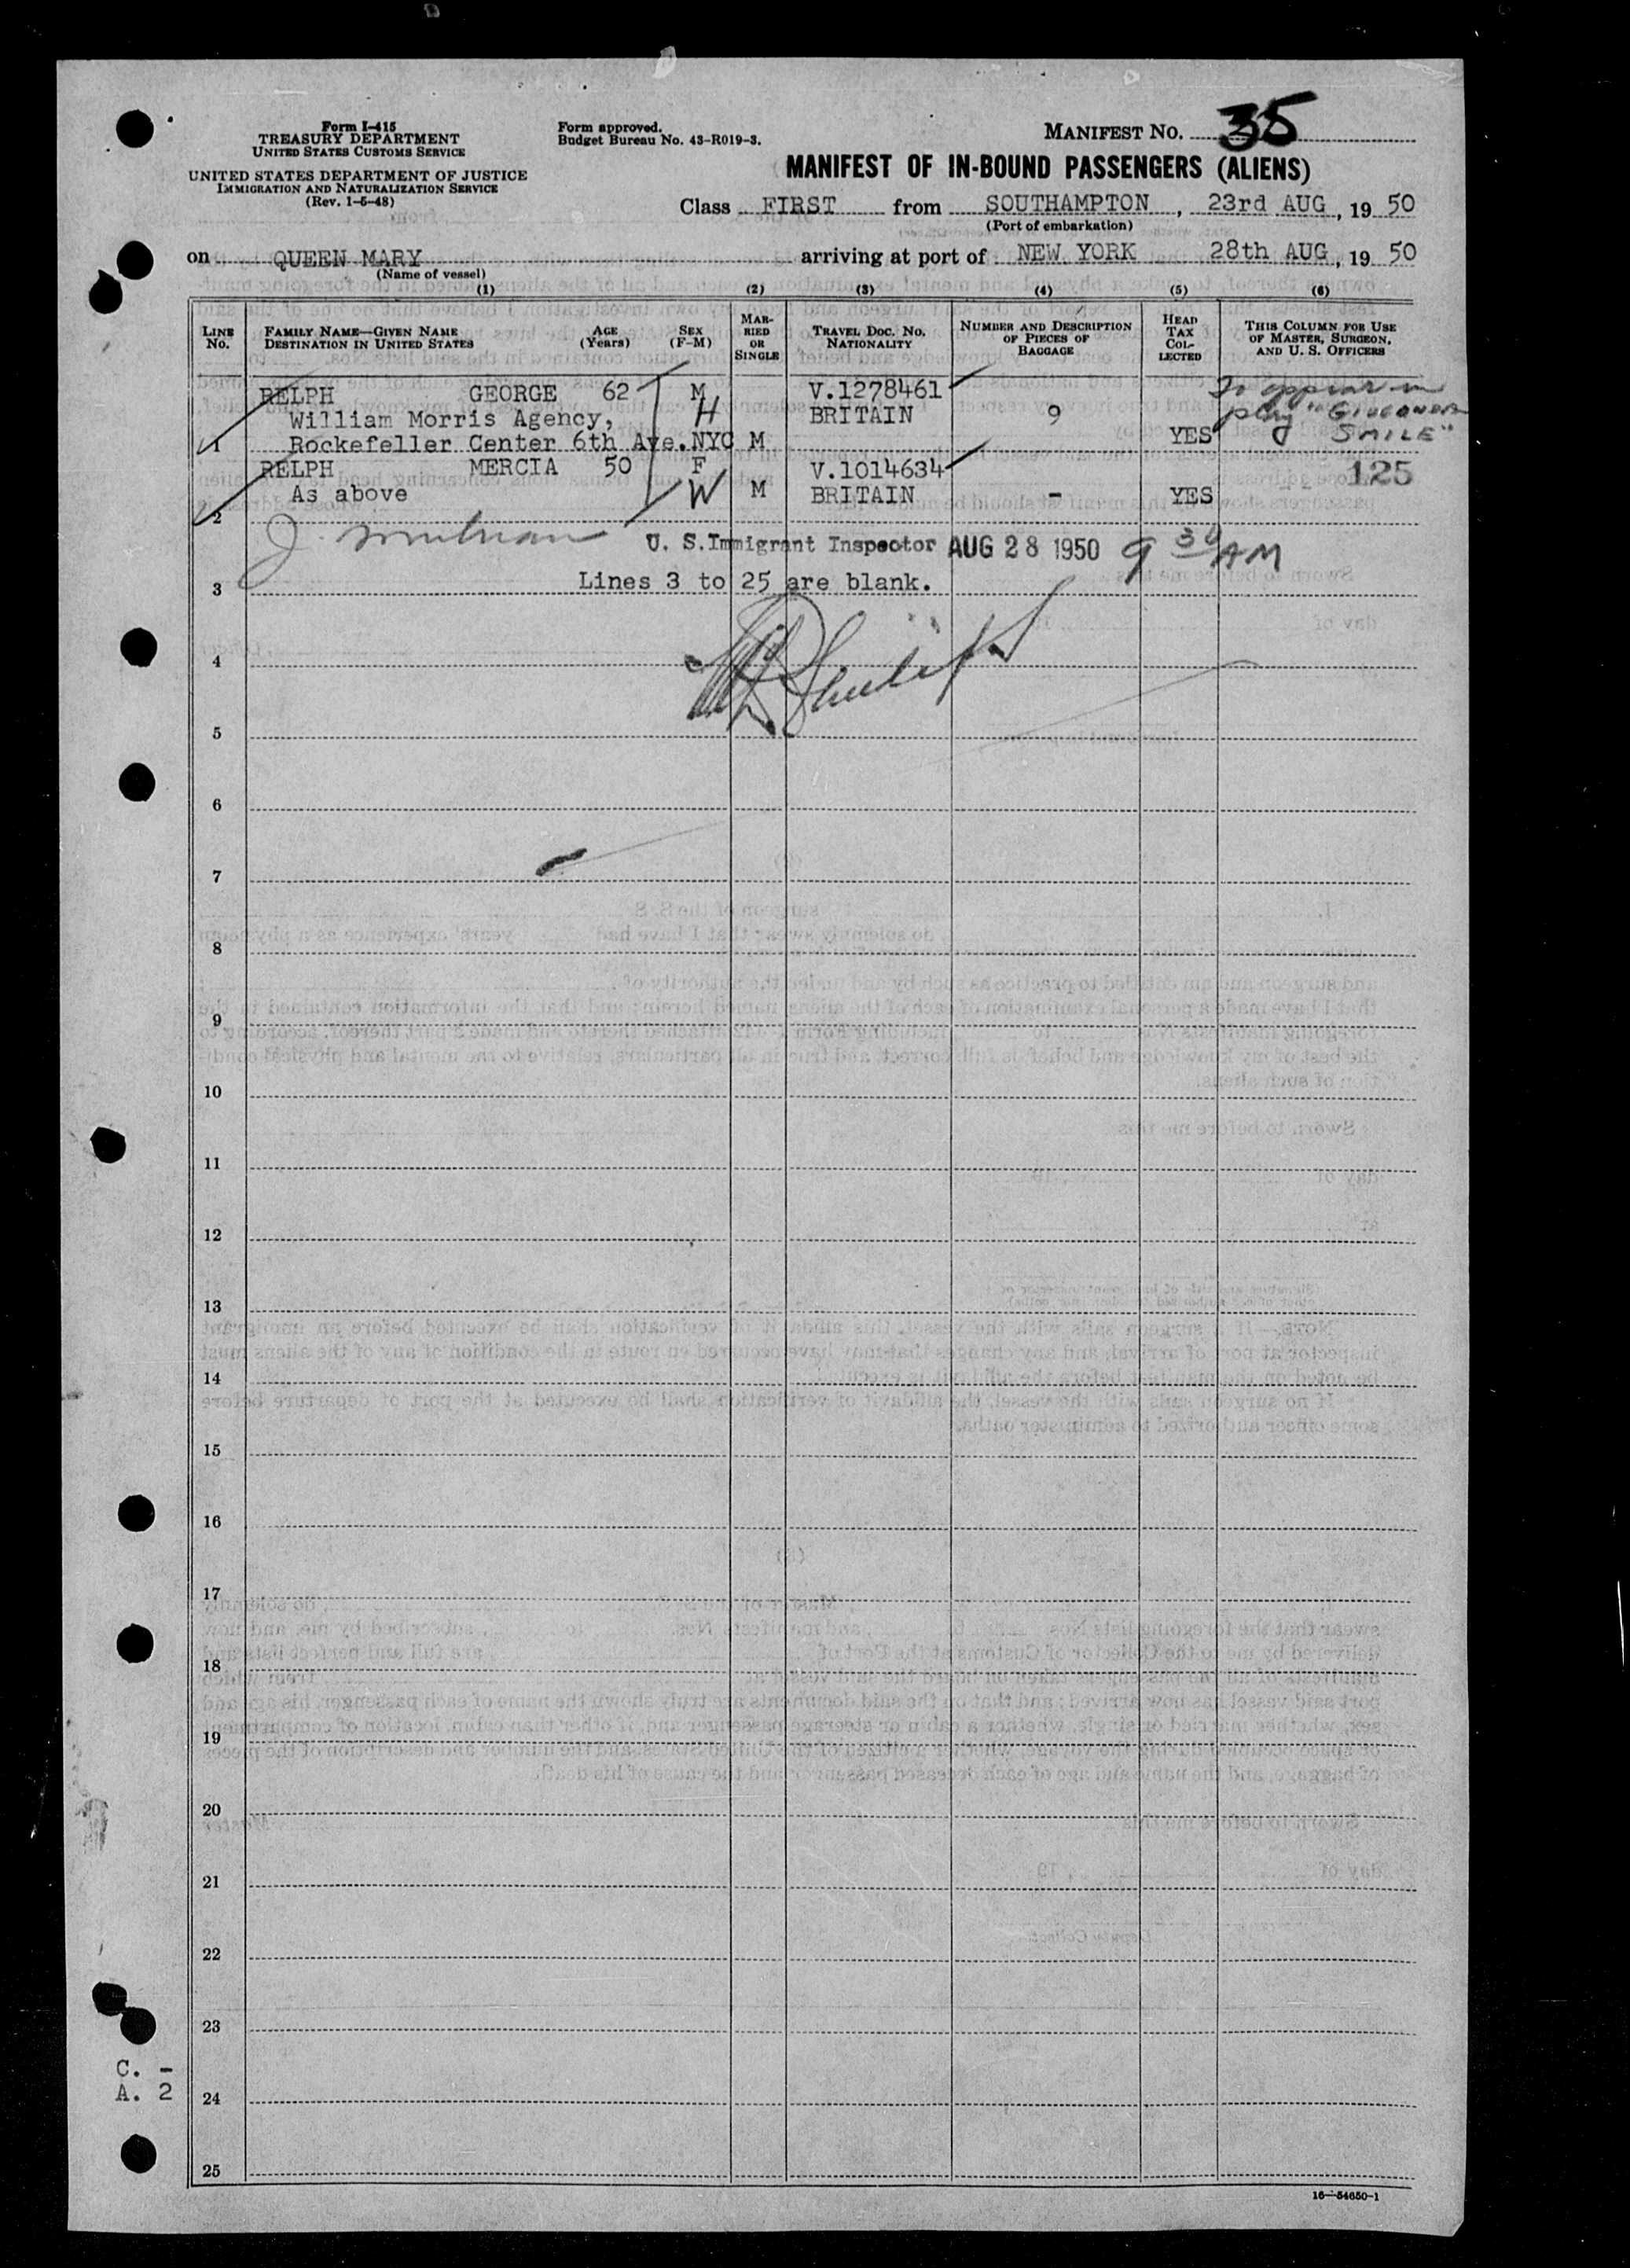 Form I-415
TREASURY DEPARTMENT
UNITED STATES CUSTOMS SERVICE
UNITED STATES DEPARTMENT OF JUSTICE
IMMIGRATION AND NATURALIZATION SERVICE
(Rev. 1-5-48)
Form approved.
Budget Bureau No. 43-R019-3.
MANIFEST NO. 35
MANIFEST OF IN-BOUND PASSENGERS (ALIENS)
Class FIRST from SOUTHAMPTON, 23rd AUG, 19 50
(Port of embarkation)
on QUEEN MARY arriving at port of NEW YORK 28th AUG, 19 50
(Name of vessel)
(1) (2) (3) (4) (5) (6)
LINE NO.
FAMILY NAME—GIVEN NAME
DESTINATION IN UNITED STATES
AGE (Years)
SEX (F-M)
MARRIED OR SINGLE
TRAVEL DOC. NO.
NATIONALITY
NUMBER AND DESCRIPTION OF PIECES OF BAGGAGE
HEAD TAX COLLECTED
THIS COLUMN FOR USE OF MASTER, SURGEON, AND U. S. OFFICERS
RELPH GEORGE 62 M V.1278461 To appear in
William Morris Agency, H BRITAIN 9 play "GIOCONDA
1 Rockefeller Center 6th Ave. NYC M YES SMILE"
RELPH MERCIA 50 F V.1014634 125
As above W M BRITAIN - YES
2
U. S. Immigrant Inspector AUG 28 1950 9 30 AM
3 Lines 3 to 25 are blank.
4
5
6
7
8
9
10
11
12
13
14
15
16
17
18
19
20
21
22
23
C. -
A. 2
24
25
16—54650-1